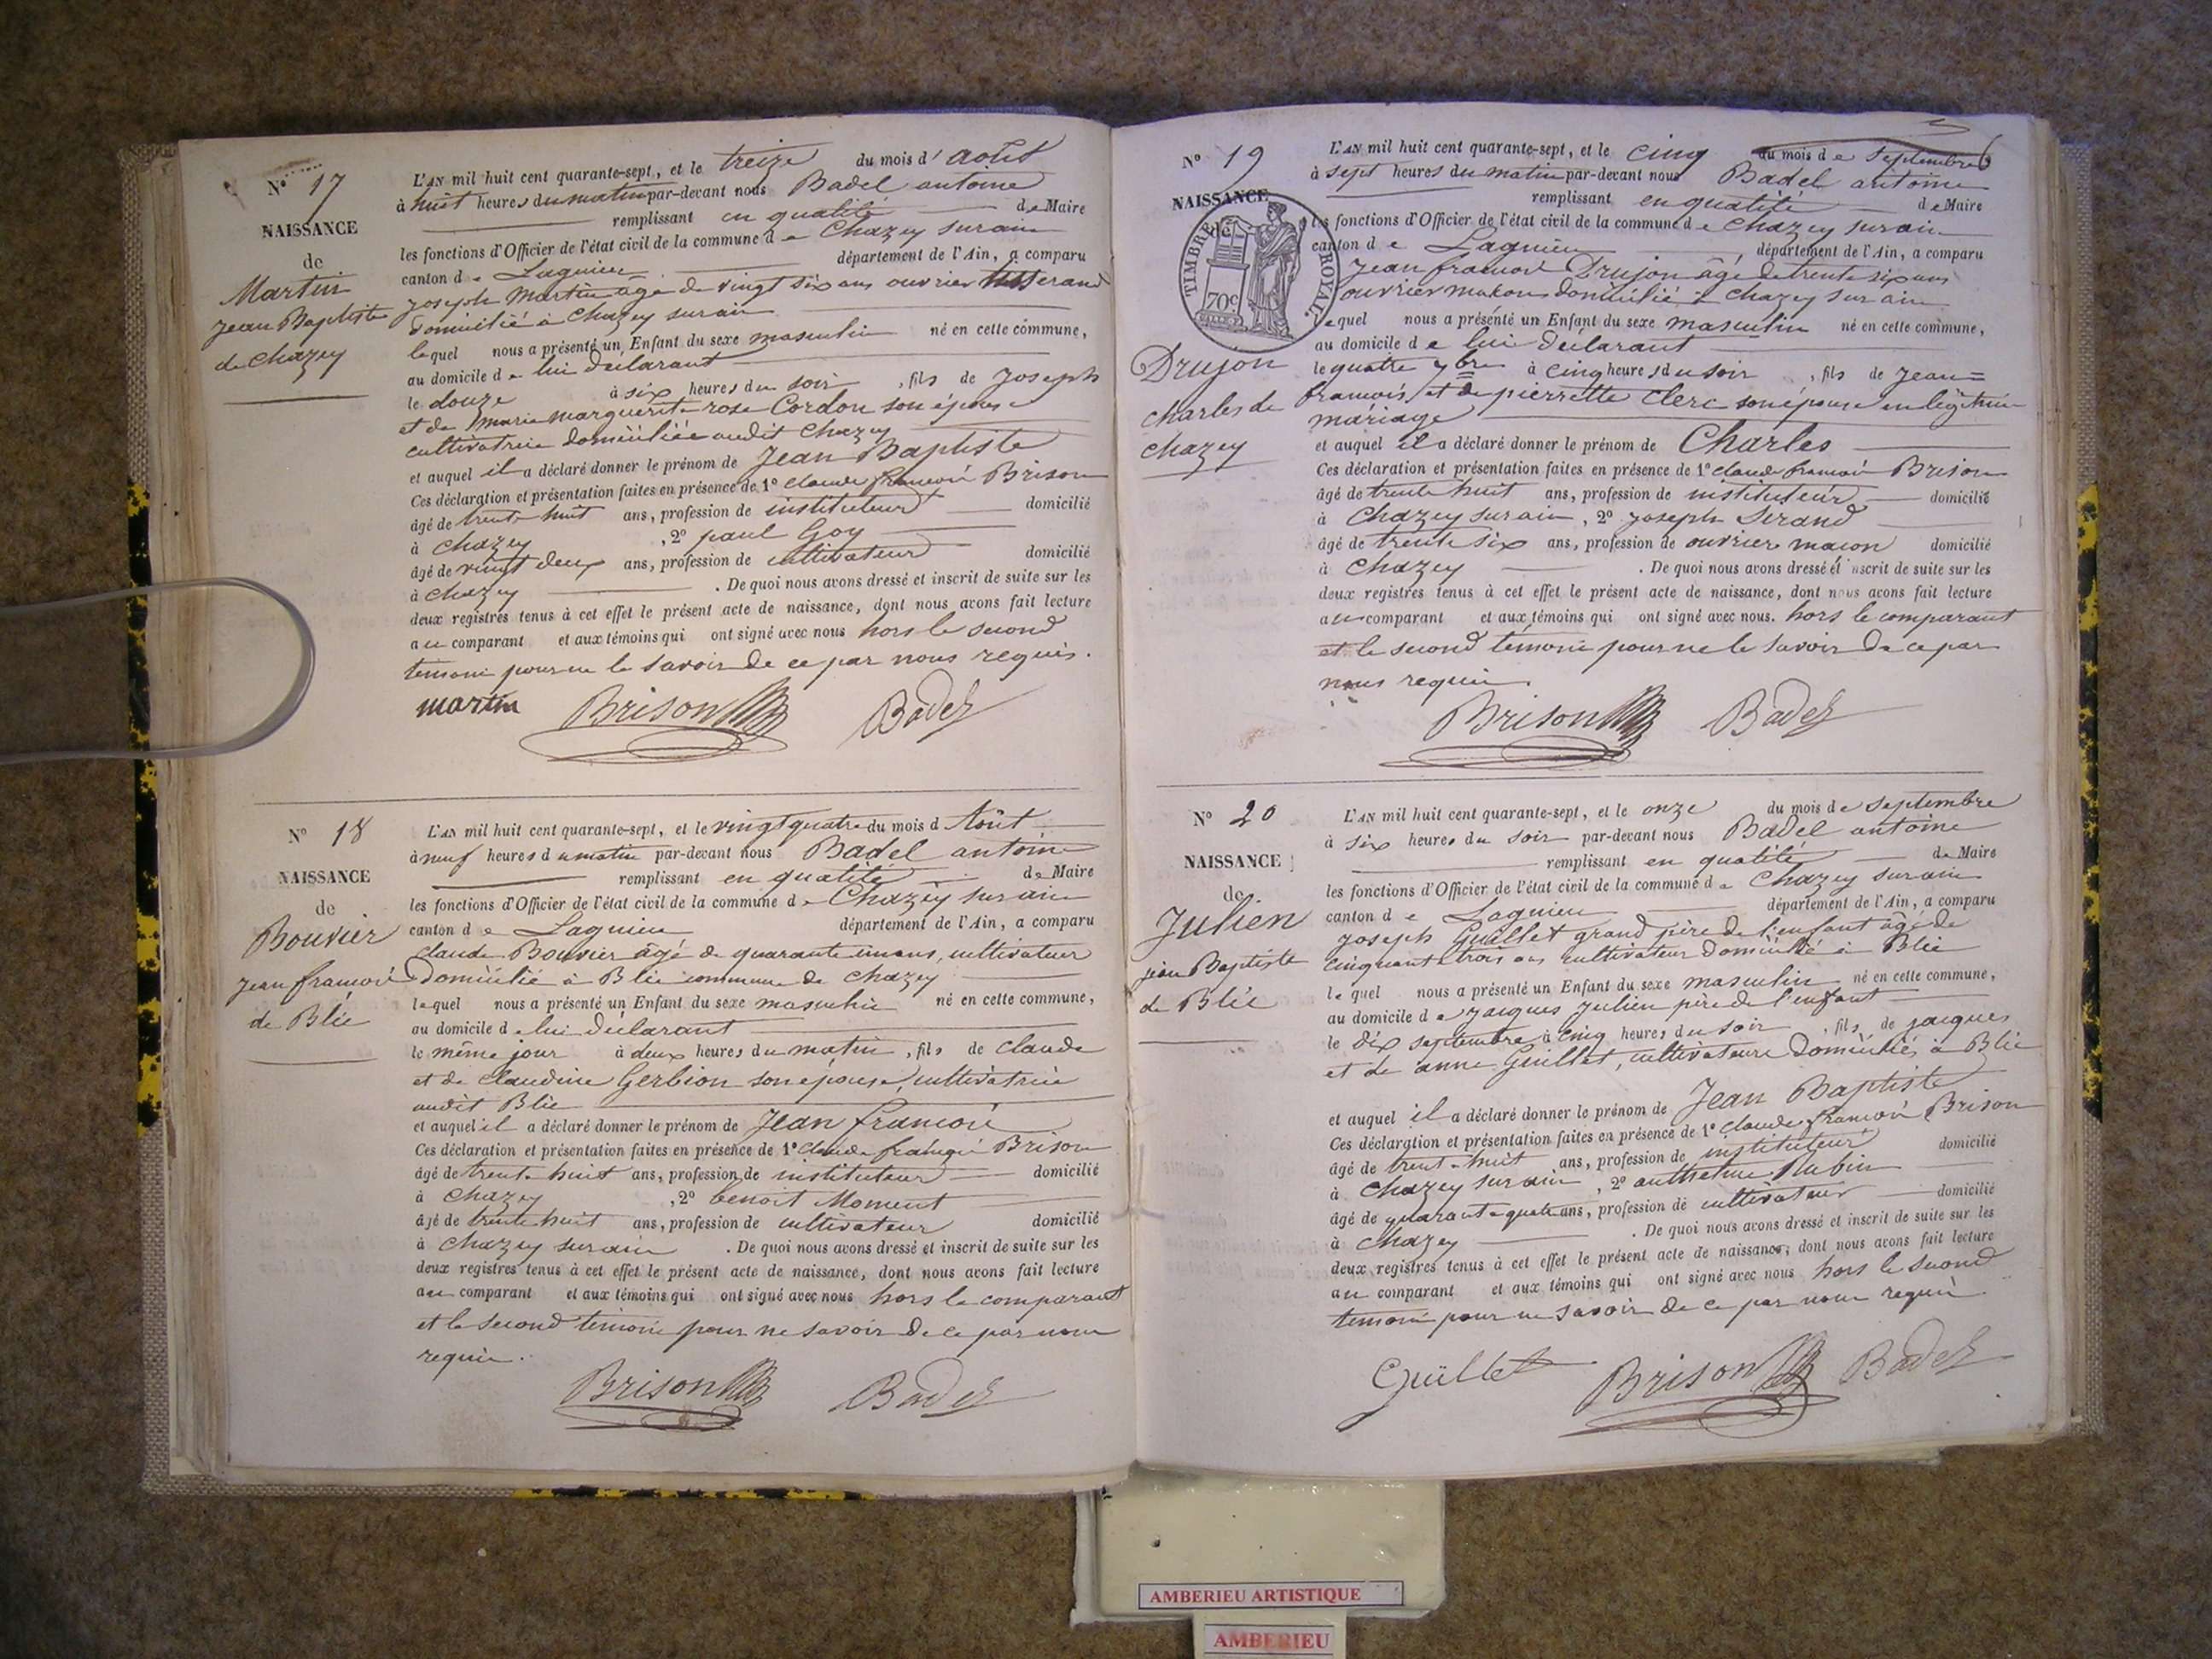 N° 17
NAISSANCE
de
Martin
jean Baptiste
de chazey
L'AN mil huit cent quarante-sept, et le treize du mois d'août
à huit heures du matin par-devant nous Badel antoine
remplissant en qualité de Maire
les fonctions d'Officier de l'état civil de la commune de Chazey sur ain
canton de Lagnieu département de l'Ain, a comparu
joseph Martin âgé de vingt six ans ouvrier tisserand
domicilié à Chazey sur ain
lequel nous a présenté un Enfant du sexe masculin né en cette commune,
au domicile de lui déclarant
le douze à six heures du soir, fils de joseph
et de marie marguerite rose Cordon son épouse
cultivatrice domiciliée audit Chazey
et auquel il a déclaré donner le prénom de Jean Baptiste
Ces déclaration et présentation faites en présence de 1° claude francois Brison
âgé de trente huit ans, profession de instituteur domicilié
à chazey, 2° paul Goy
âgé de vingt deux ans, profession de cultivateur domicilié
à chazey. De quoi nous avons dressé et inscrit de suite sur les
deux registres tenus à cet effet le présent acte de naissance, dont nous avons fait lecture
au comparant et aux témoins qui ont signé avec nous hors le second
temoin pour ne le savoir de ce par nous requis.
martin Brison Badel
N° 18
NAISSANCE
de
Bouvier
jean francois
de Blie
L'AN mil huit cent quarante-sept, et le vingt quatre du mois d Août
à neuf heures du matin par-devant nous Badel antoine
remplissant en qualité de Maire
les fonctions d'Officier de l'état civil de la commune de Chazey sur ain
canton de Lagnieu département de l'Ain, a comparu
claude Bouvier âgé de quarante un ans, cultivateur
domicilié à Blie commune de chazey
lequel nous a présenté un Enfant du sexe masculin né en cette commune,
au domicile de lui déclarant
le même jour à deux heures du matin, fils de claude
et de claudine Gerbion son épouse, cultivatrice
audit Blie
et auquel il a déclaré donner le prénom de Jean francois
Ces déclaration et présentation faites en présence de 1° claude francois Brison
âgé de trente huit ans, profession de instituteur domicilié
à chazey, 2° benoit Moment
âgé de trente huit ans, profession de cultivateur domicilié
à chazey sur ain. De quoi nous avons dressé et inscrit de suite sur les
deux registres tenus à cet effet le présent acte de naissance, dont nous avons fait lecture
au comparant et aux témoins qui ont signé avec nous hors le comparant
et le second temoin pour ne savoir de ce par nous
requis.
Brison Badel
6
N° 19
NAISSANCE
TIMBRE ROYAL
70c
Drujon
charles de
chazey
L'AN mil huit cent quarante-sept, et le cinq du mois de septembre
à sept heures du matin par-devant nous Badel antoine
remplissant en qualité de Maire
les fonctions d'Officier de l'état civil de la commune de Chazey sur ain
canton de Lagnieu, département de l'Ain, a comparu
jean francois Drujon âgé de trente six ans
ouvrier makon domicilié à chazey sur ain
lequel nous a présenté un Enfant du sexe masculin né en cette commune,
au domicile de lui déclarant
le quatre 7bre à cinq heures du soir, fils de jean=
francois, et de pierrette Clerc son épouse en légitime
mariage
et auquel il a déclaré donner le prénom de Charles
Ces déclaration et présentation faites en présence de 1° claude francois Brison
âgé de trente huit ans, profession de instituteur domicilié
à Chazey sur ain, 2° joseph Serand
âgé de trente six ans, profession de ouvrier macon domicilié
à Chazey. De quoi nous avons dressé et inscrit de suite sur les
deux registres tenus à cet effet le présent acte de naissance, dont nous avons fait lecture
au comparant et aux témoins qui ont signé avec nous. hors le comparant
et le second temoin pour ne le savoir de ce par
nous requis.
Brison Badel
N° 20
NAISSANCE
de
Julien
jean Baptiste
de Blie
L'AN mil huit cent quarante-sept, et le onze du mois de septembre
à six heures du soir par-devant nous Badel antoine
remplissant en qualité de Maire
les fonctions d'Officier de l'état civil de la commune de Chazey sur ain
canton de Lagnieu département de l'Ain, a comparu
joseph Guillet grand père de l'enfant âgé de
cinquante trois ans cultivateur domicilié à Blie
lequel nous a présenté un Enfant du sexe masculin né en cette commune,
au domicile de jacques julien père de l'enfant
le dix septembre à cinq heures du soir, fils de jacques
et de anne Guillet, cultivateurs domiciliés à Blie
et auquel il a déclaré donner le prénom de Jean Baptiste
Ces déclaration et présentation faites en présence de 1° claude francois Brison
âgé de trente huit ans, profession de instituteur domicilié
à Chazey sur ain, 2° anthelme
âgé de quarante quatre ans, profession de cultivateur domicilié
à Chazey. De quoi nous avons dressé et inscrit de suite sur les
deux registres tenus à cet effet le présent acte de naissance, dont nous avons fait lecture
au comparant et aux témoins qui ont signé avec nous hors le second
temoin pour ne savoir de ce par nous requis
Guillet Brison Badel
AMBERIEU ARTISTIQUE
AMBERIEU